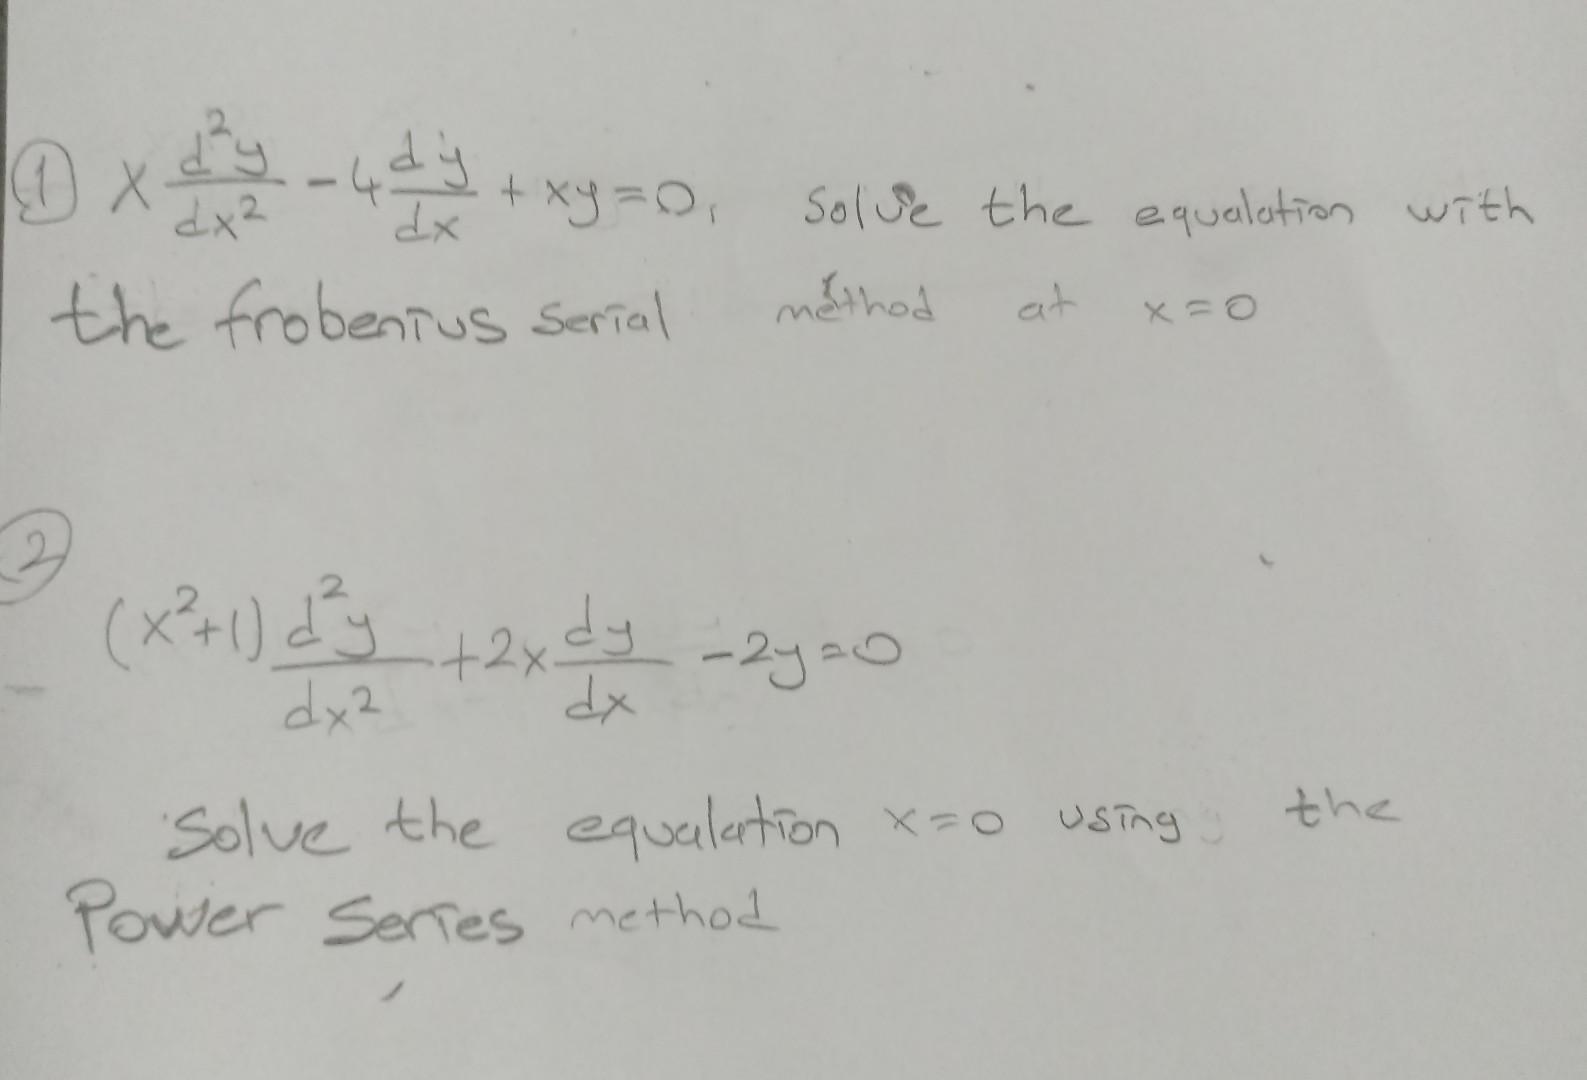 ① x d²y/dx² - 4 dy/dx + xy = 0, Solve the equalation with
the frobenius serial method at x = 0
②
(x²+1) d²y/dx² + 2x dy/dx - 2y = 0
Solve the equalation x = 0 using the
Power Series method